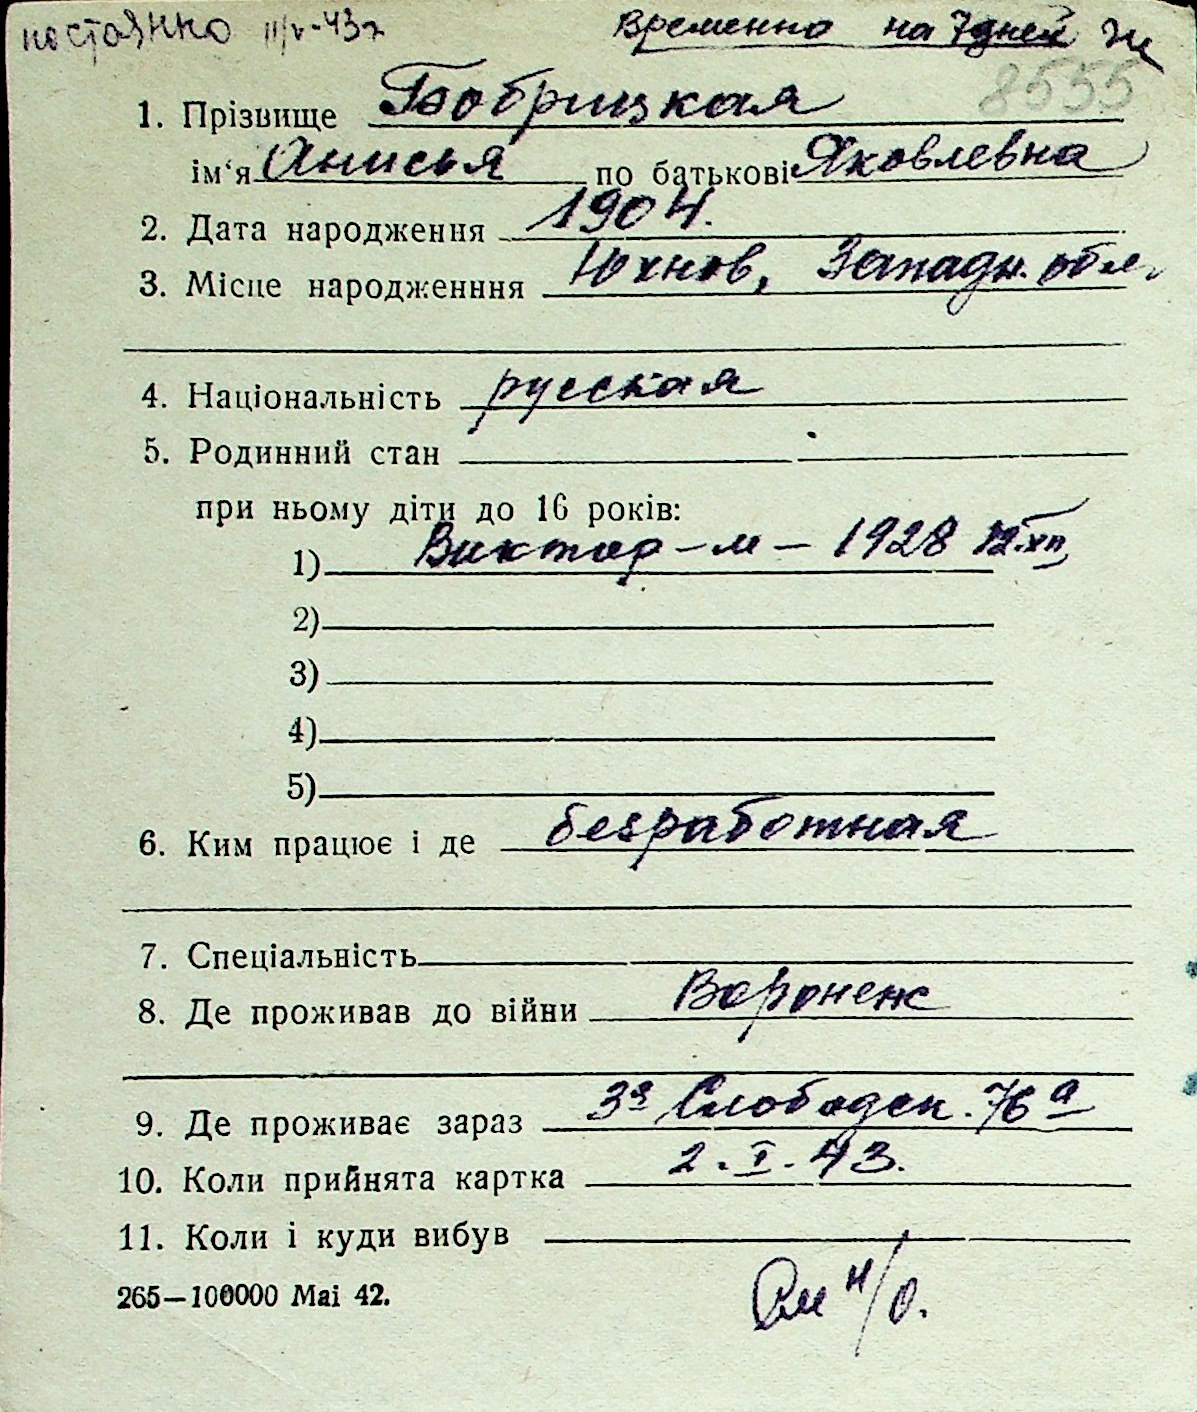 постоянно III/V-43г Временно на 7 дней
8555
1. Прізвище Бобрицкая
ім'я Анисья по батькові Яковлевна
2. Дата народження 1904.
3. Місце народженння Юхнов, Западн. обл.
4. Національність русская
5. Родинний стан
при ньому діти до 16 років:
1) Виктор – м – 1928 12.XII
2)
3)
4)
5)
6. Ким працює і де безработная
7. Спеціальність
8. Де проживав до війни Воронеж
9. Де проживає зараз 3я Слободск. 76а
10. Коли прийнята картка 2.I.43.
11. Коли і куди вибув
265—100000 Mai 42.